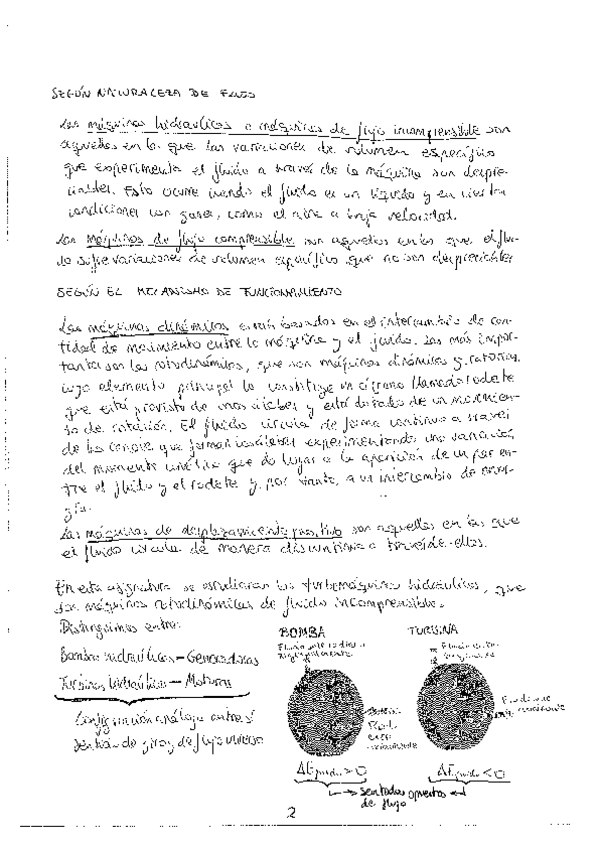 SEGÚN NATURALEZA DE FLUJO
Las máquinas hidráulicas o máquinas de flujo incompresible son
aquellas en la que las variaciones de volumen específico
que experimenta el fluido a través de la máquina son despre-
ciables. Esto ocurre cuando el fluido es un líquido y en ciertas
condiciones con gases, como el aire a baja velocidad.
Las máquinas de flujo compresible son aquellas en las que el flui-
do sufre variaciones de volumen específico que no son despreciables
SEGÚN EL MECANISMO DE FUNCIONAMIENTO
Las máquinas dinámicas están basadas en el intercambio de can-
tidad de movimiento entre la máquina y el fluido. Las más impor-
tantes son las rotodinámicas, que son máquinas dinámicas giratorias,
cuyo elemento principal lo constituye un órgano llamado rodete
que está provisto de unos álabes y está dotado de un movimien-
to de rotación. El fluido circula de forma continua a través
de los canales que forman los álabes experimentando una variación
del momento cinético que da lugar a la aparición de un par en-
tre el fluido y el rodete y, por tanto, a un intercambio de ener-
gía.
Las máquinas de desplazamiento positivo son aquellas en las que
el fluido circula de manera discontinua a través de ellas.
En esta asignatura se estudiarán las turbomáquinas hidráulicas, que
son máquinas rotodinámicas de fluido incompresible.
Distinguimos entre:
Bombas hidráulicas - Generadoras
Turbinas hidráulicas - Motoras
Configuración análoga entre sí
sentido de giro y de flujo inverso
BOMBA
TURBINA
>0
<0
sentidos opuestos
de flujo
2